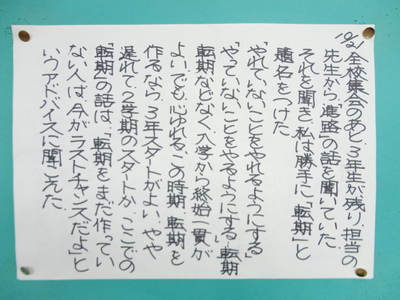 10/2 全校集会のあと、3年生が残り、担当の
先生から「進路」の話を聞いていた。
それを聞き、私は勝手に「転期」と
題名をつけた。
「やれていないことをやれるようにする」
「やっていないことをやるようにする」転期
転期などなく、入学から終始一貫が
よい。でも、心ゆれるこの時期、転期を
作るなら、3年スタートがよい。やや
遅れて、2学期のスタートか。ここでの
「転期」の話は、「転期をまだ作ってい
ない人は、今がラストチャンスだよ」と
いうアドバイスに聞こえた。